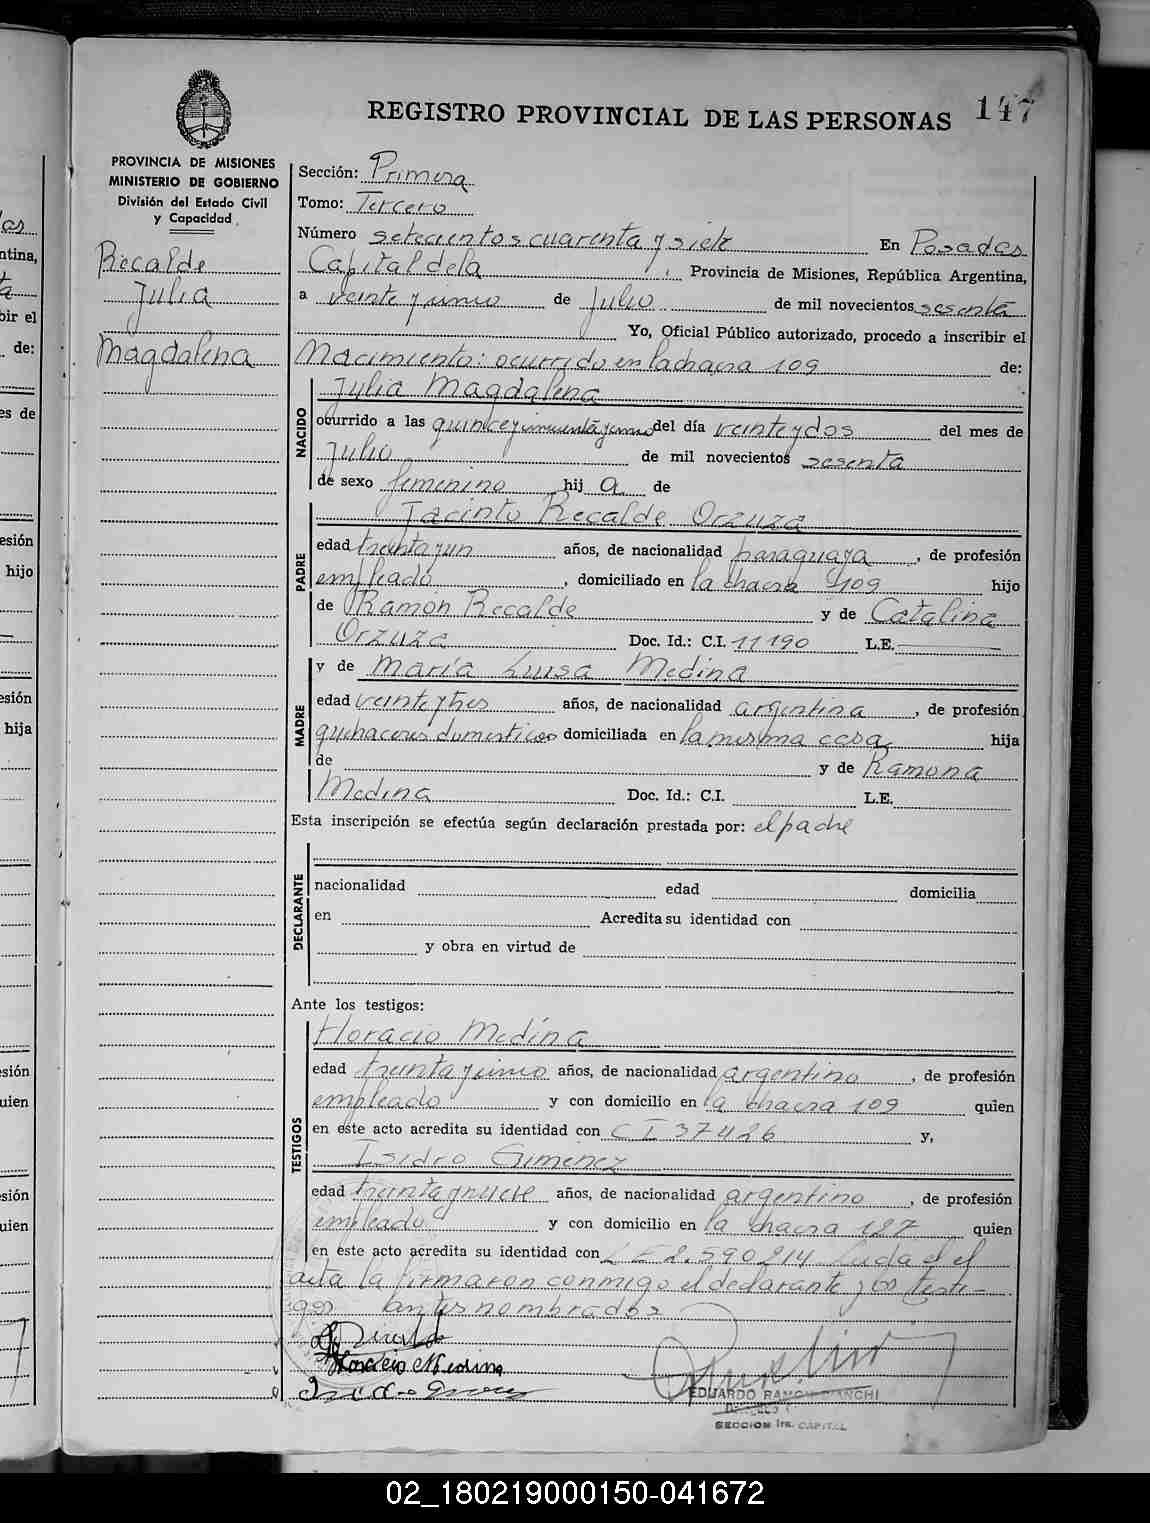 147
REGISTRO PROVINCIAL DE LAS PERSONAS
PROVINCIA DE MISIONES
MINISTERIO DE GOBIERNO
División del Estado Civil
y Capacidad
Recalde
Julia
Magdalena
Sección: Primera
Tomo: Tercero
Número setecientos cuarenta y siete En Posadas
Capital de la Provincia de Misiones, República Argentina,
a veinte y de Julio de mil novecientos sesenta
Yo, Oficial Público autorizado, procedo a inscribir el
Nacimiento: ocurrido en la chacra 109 de:
NACIDO
Julia Magdalena
ocurrido a las del día veinte y dos del mes de
Julio de mil novecientos sesenta
de sexo femenino hij a de
PADRE
Jacinto Recalde Orzuza
edad treinta y un años, de nacionalidad paraguaya, de profesión
empleado, domiciliado en la chacra 109 hijo
de Ramón Recalde y de Catalina
Orzuza Doc. Id.: C.I. 11190 L.E.
MADRE
y de María Luisa Medina
edad veinte y tres años, de nacionalidad argentina, de profesión
quehaceres domesticos domiciliada en la misma casa hija
de y de Ramona
Medina Doc. Id.: C.I. L.E.
Esta inscripción se efectúa según declaración prestada por: el padre
DECLARANTE
nacionalidad edad domicilia
en Acredita su identidad con
y obra en virtud de
Ante los testigos:
TESTIGOS
Horacio Medina
edad treinta y uno años, de nacionalidad argentino, de profesión
empleado y con domicilio en la chacra 109 quien
en este acto acredita su identidad con C I 37426 y,
Isidro Gimenez
edad treinta y nueve años, de nacionalidad argentino, de profesión
empleado y con domicilio en la chacra 127 quien
en este acto acredita su identidad con L E 2.590214 Leida el
acta la firmaron conmigo el declarante y los testi-
gos antes nombrados
Horacio Medina
EDUARDO RAMON BIANCHI
SECCION 1ra. CAPITAL
02_180219000150-041672